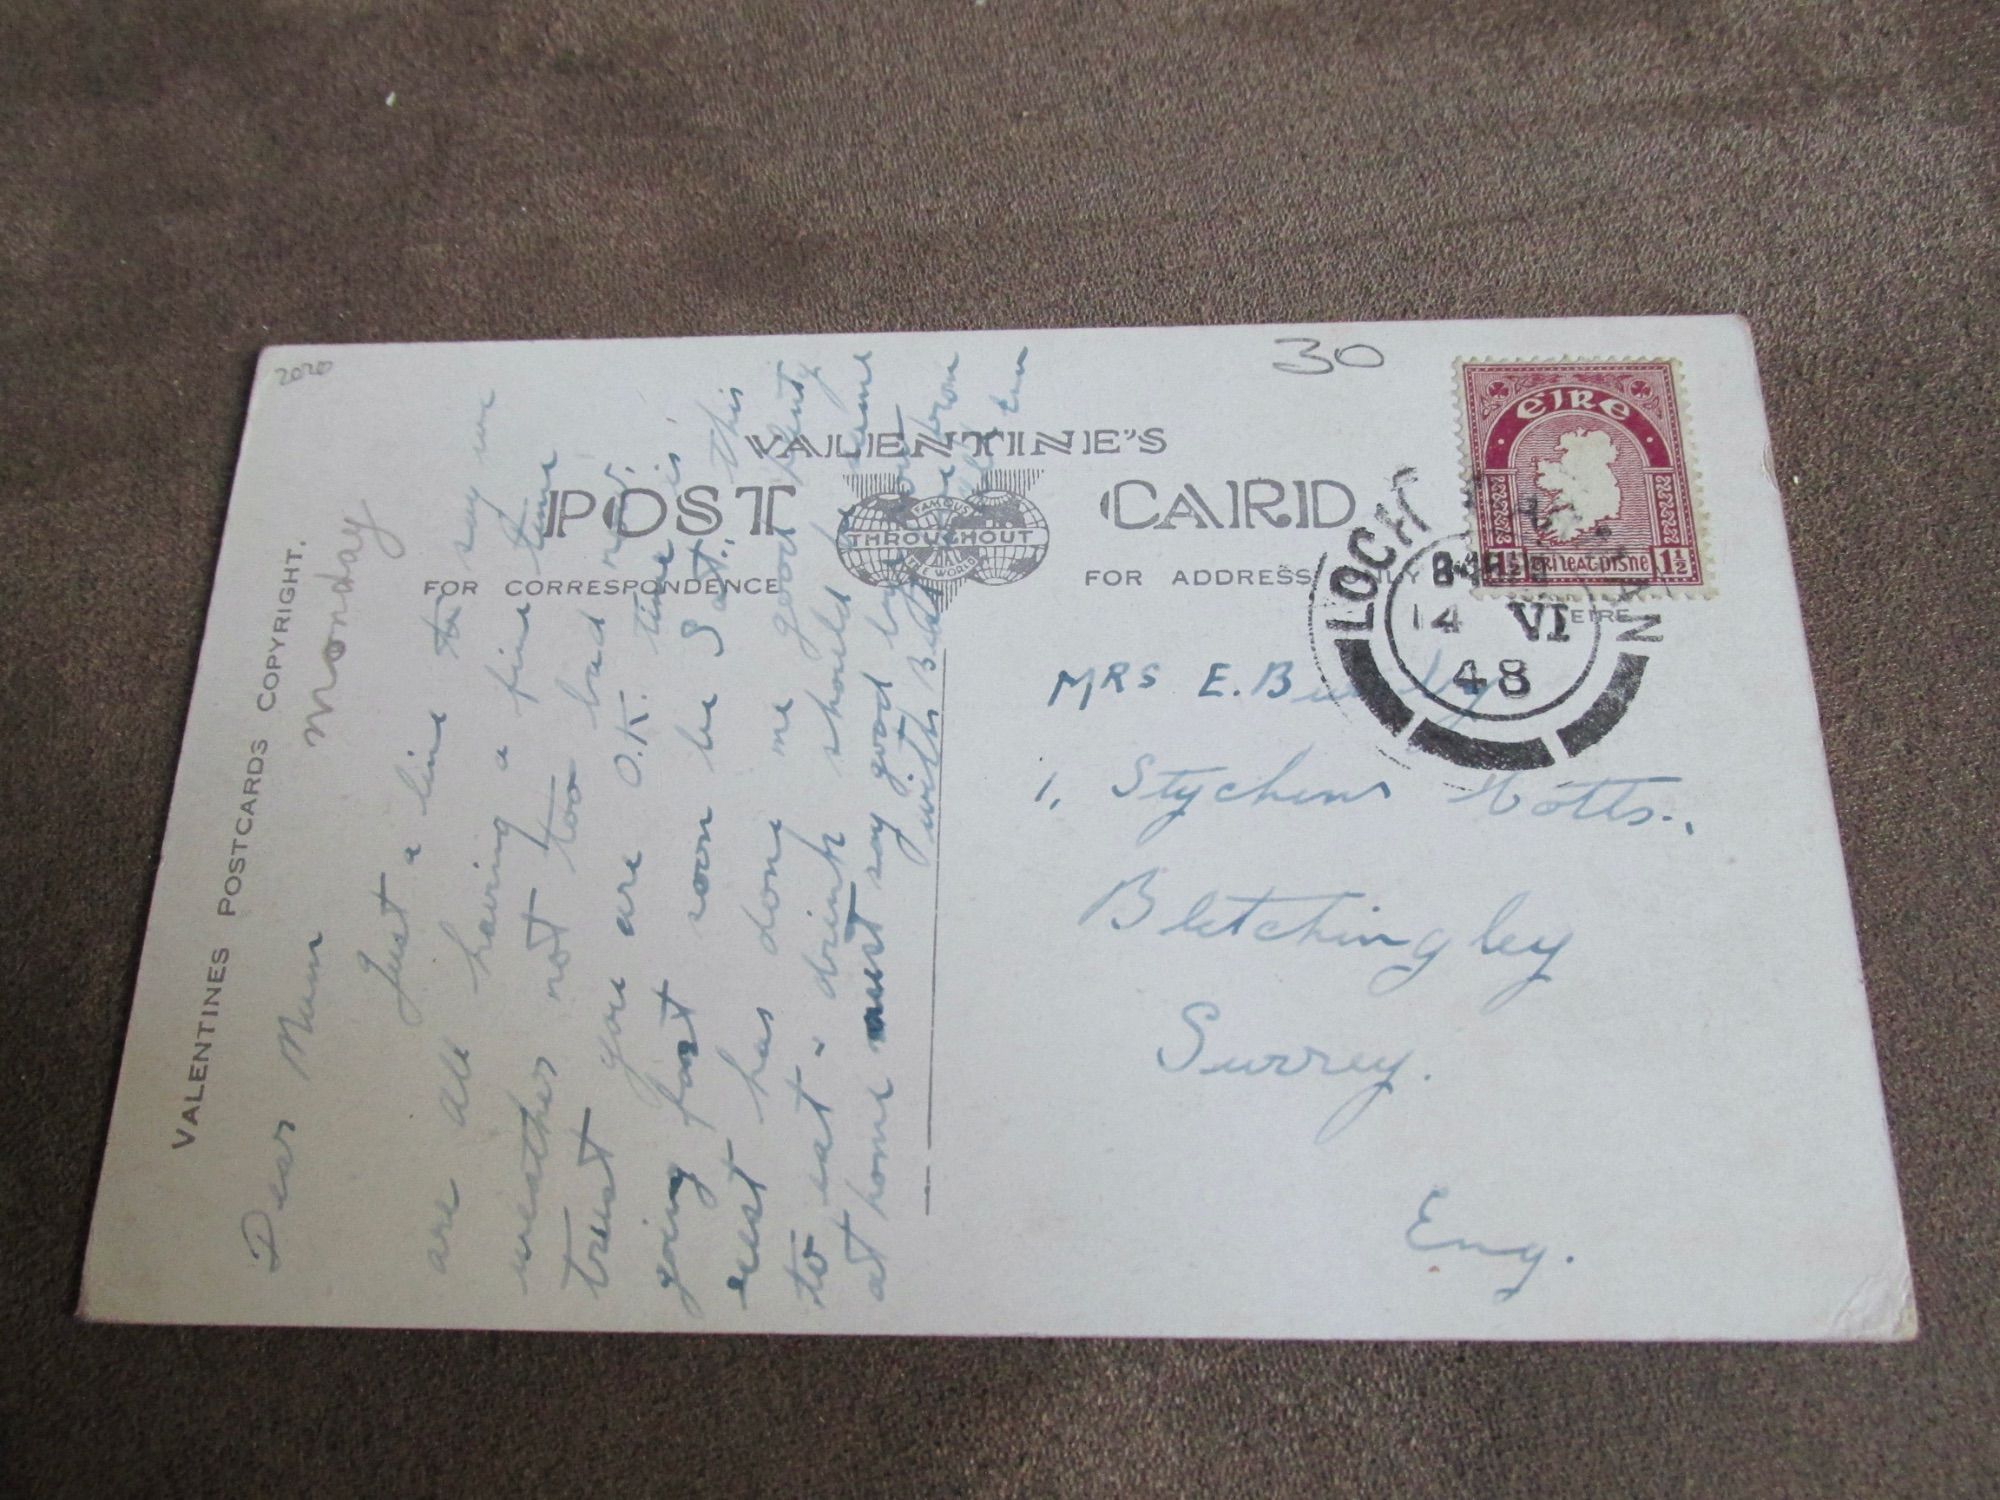 2020
30
VALENTINE'S
POST CARD
FAMOUS
THROUGHOUT
THE WORLD
FOR CORRESPONDENCE
FOR ADDRESS
EIRE
VALENTINES POSTCARDS COPYRIGHT.
EIRE
1½ 1½
LOCH
14 VI
48
Monday
Dear Mum
Just a line to say we
are all having a fine time
weather not too bad
trust you are O.K. time is
going fast soon be Sat., this
rest has done me good plenty
to eat & drink should
at home must say good bye
with
MRS E.
1, Stychens Cotts.,
Bletchingley
Surrey.
Eng.